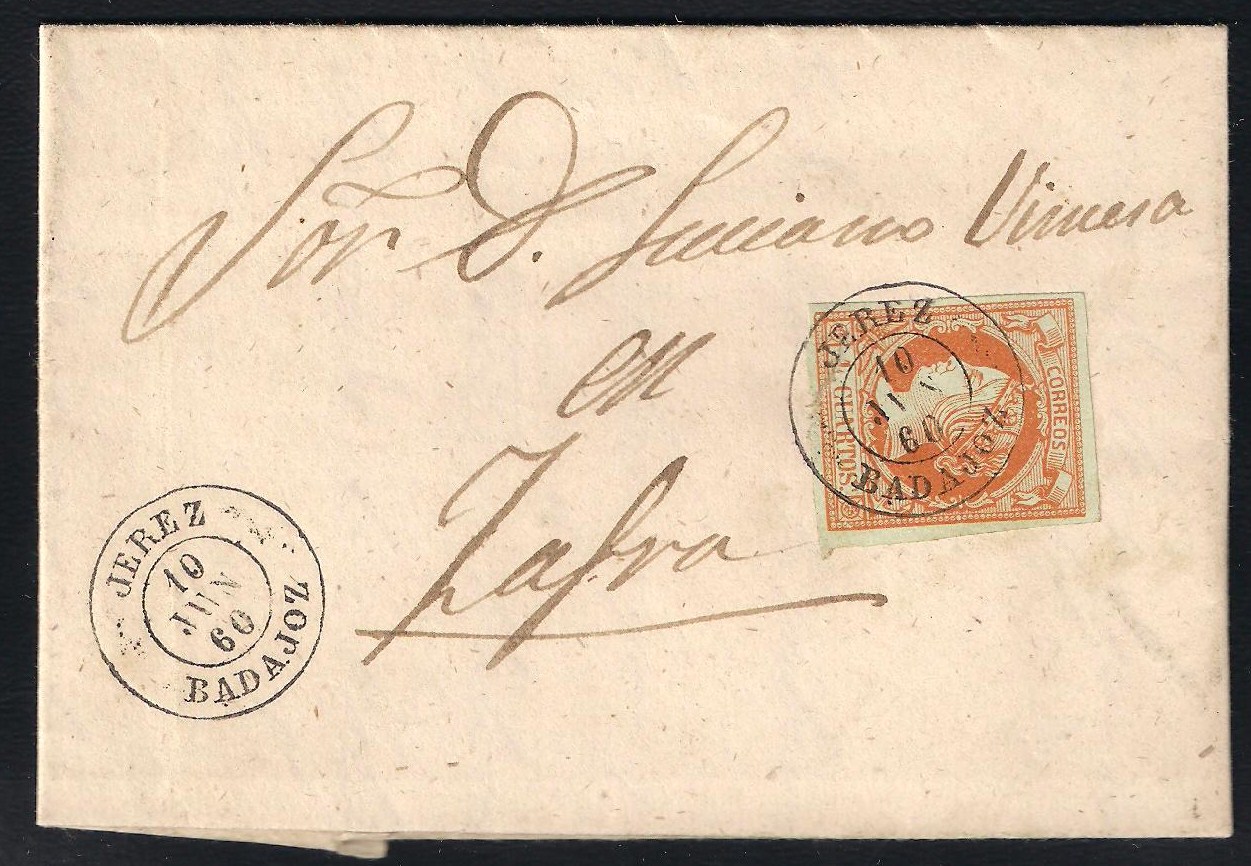 Sor. D. Luciano
en
Zafra
JEREZ
10
JUN
60
BADAJOZ
CORREOS
CUARTOS
JEREZ
10
JUN
60
BADAJOZ